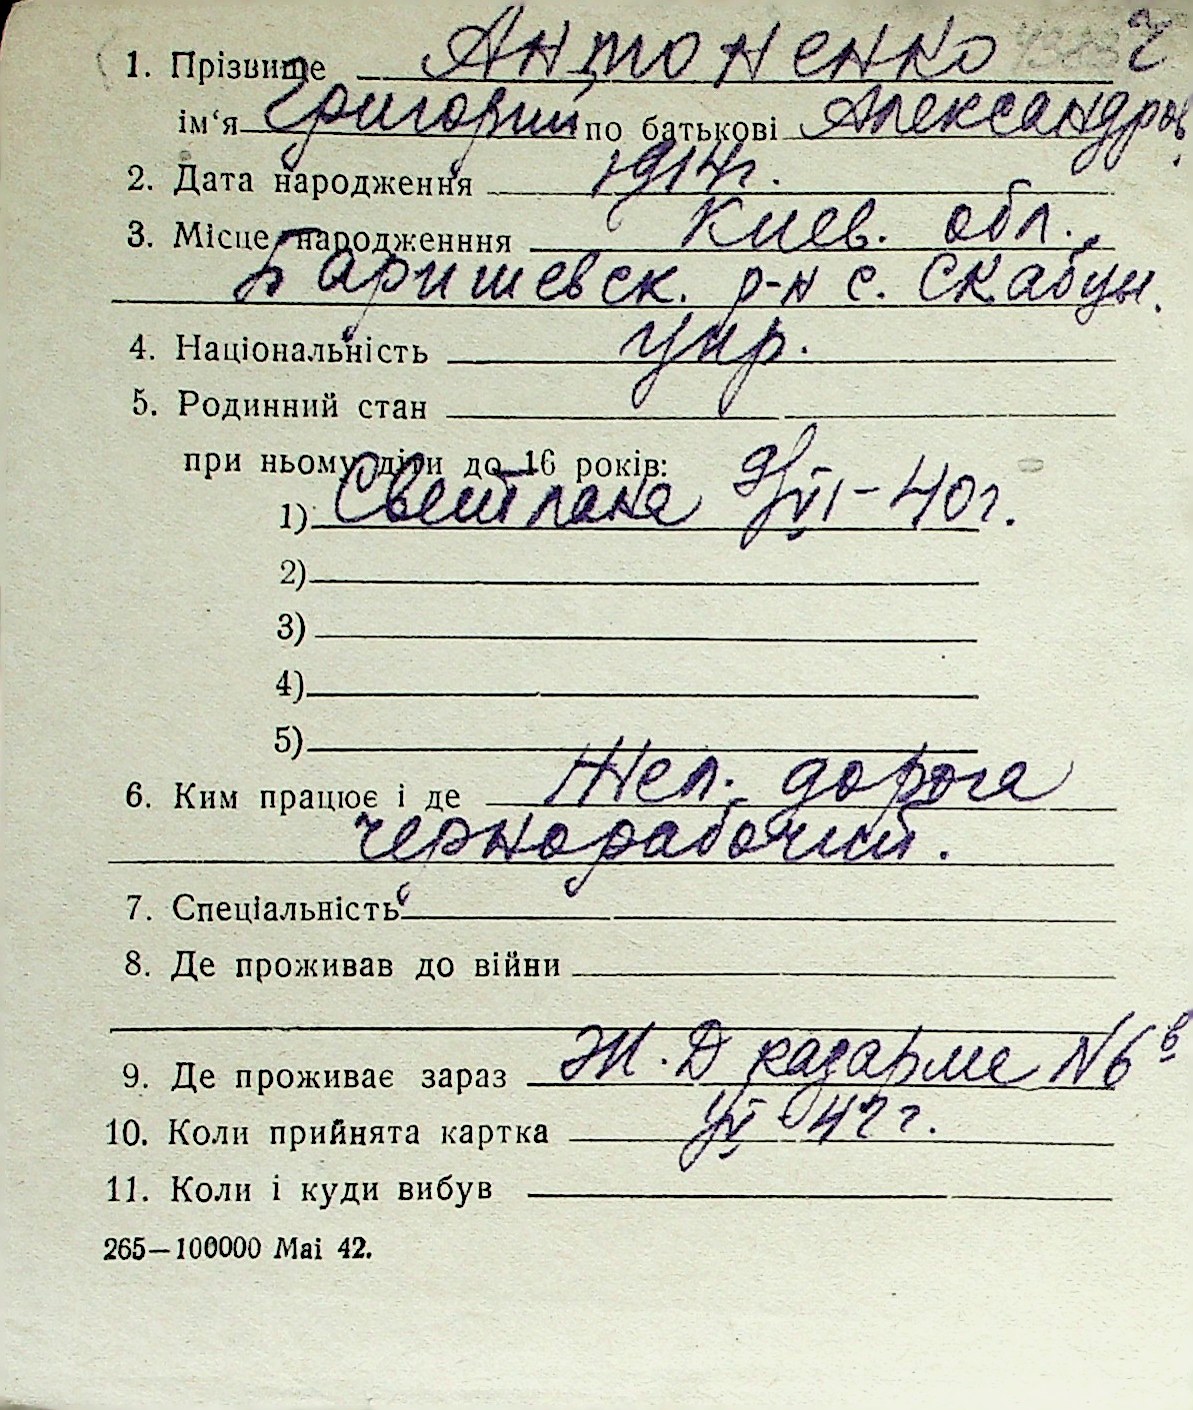 1. Прізвище Антоненко Ч
ім‘я Григорий по батькові Александров.
2. Дата народження 1914г.
3. Місце народженння Киев. обл.,
Баришевск. р-н с. Скабцы.
4. Національність укр.
5. Родинний стан
при ньому діти до 16 років:
1) Светлана 9/VI-40г.
2)
3)
4)
5)
6. Ким працює і де Жел. дорога
чернорабочий.
7. Спеціальність
8. Де проживав до війни
9. Де проживає зараз Ж.Д казарме №6 в
10. Коли прийнята картка VI-42г.
11. Коли і куди вибув
265—100000 Mai 42.